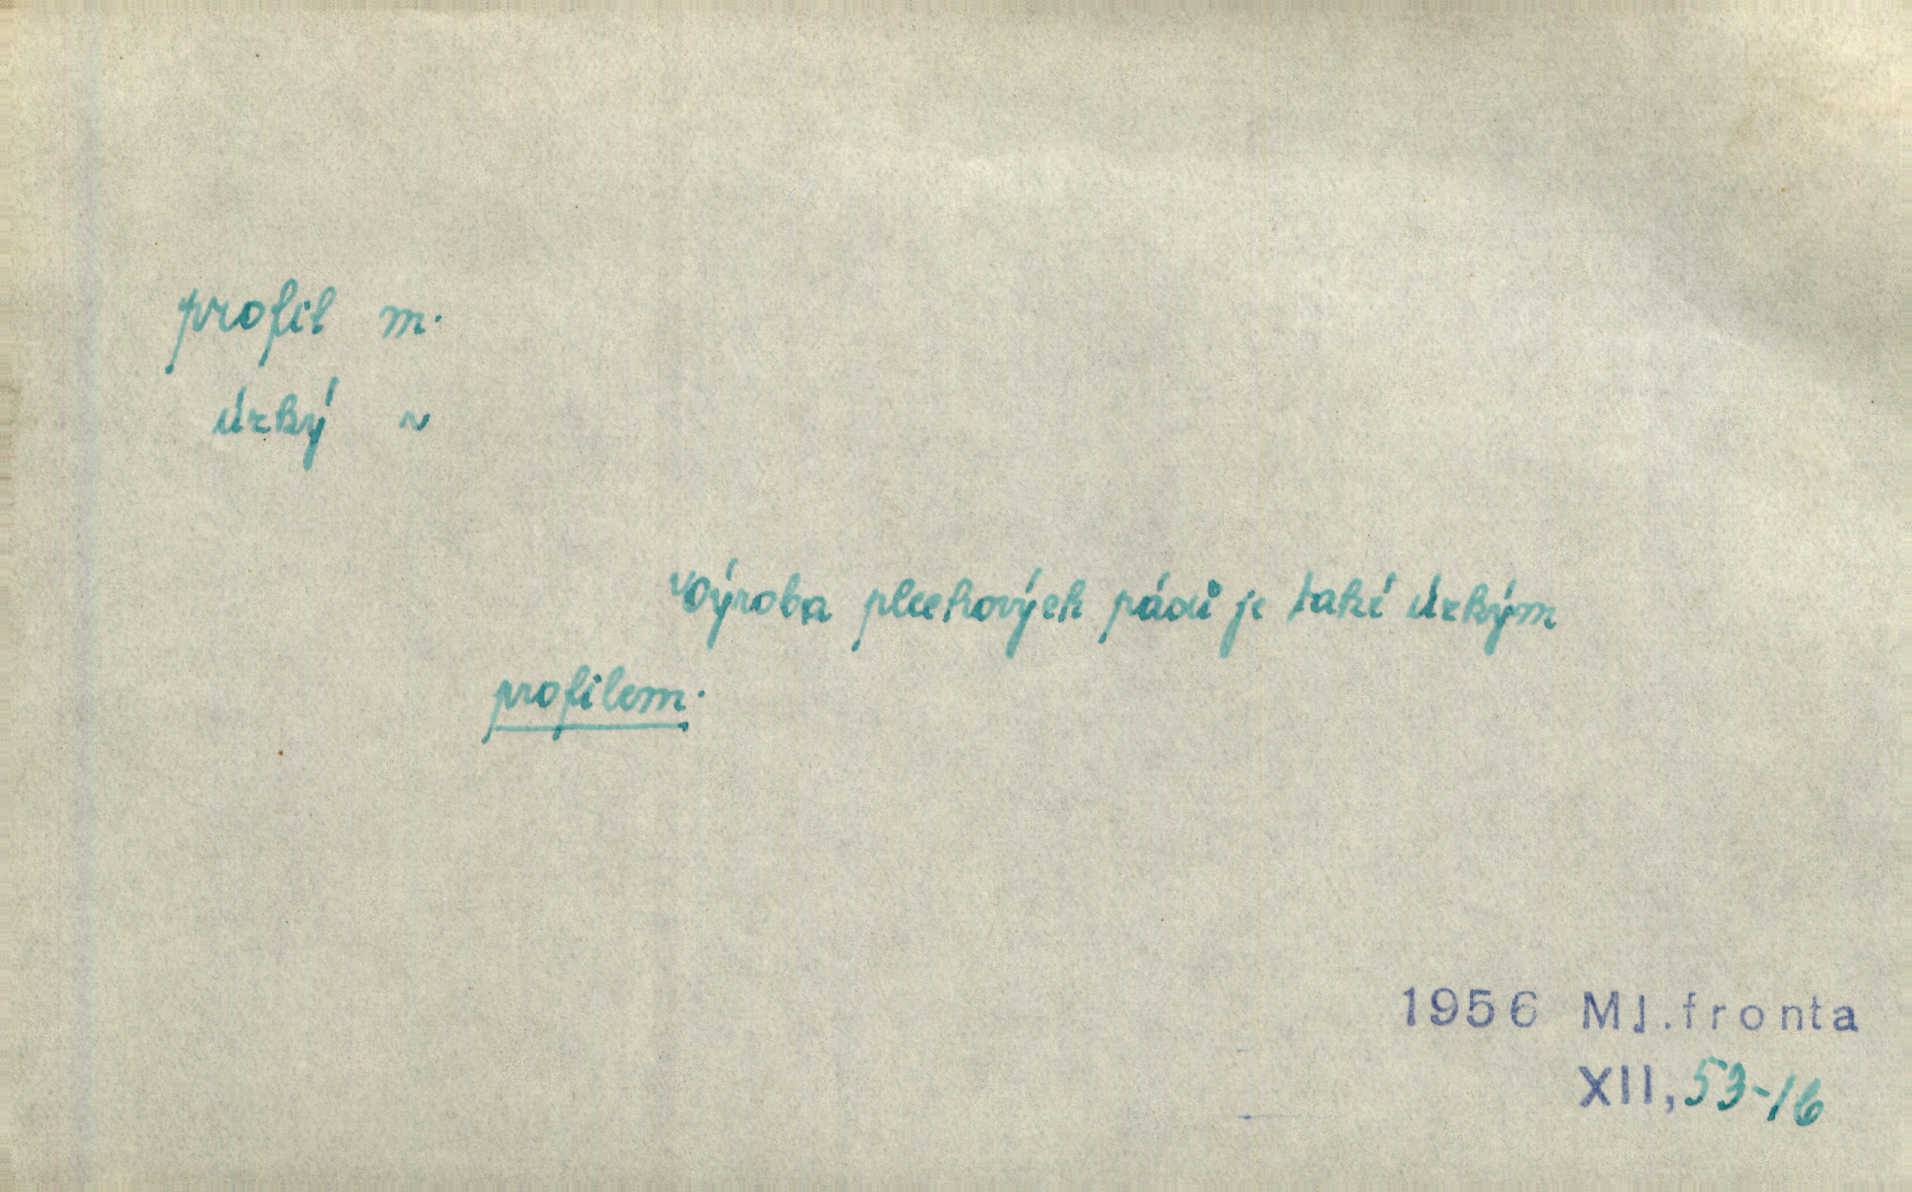 profil m.
úzký ~
Výroba plechových pásů je také úzkým
profilem.
1956 Ml.fronta
XII, 53-16